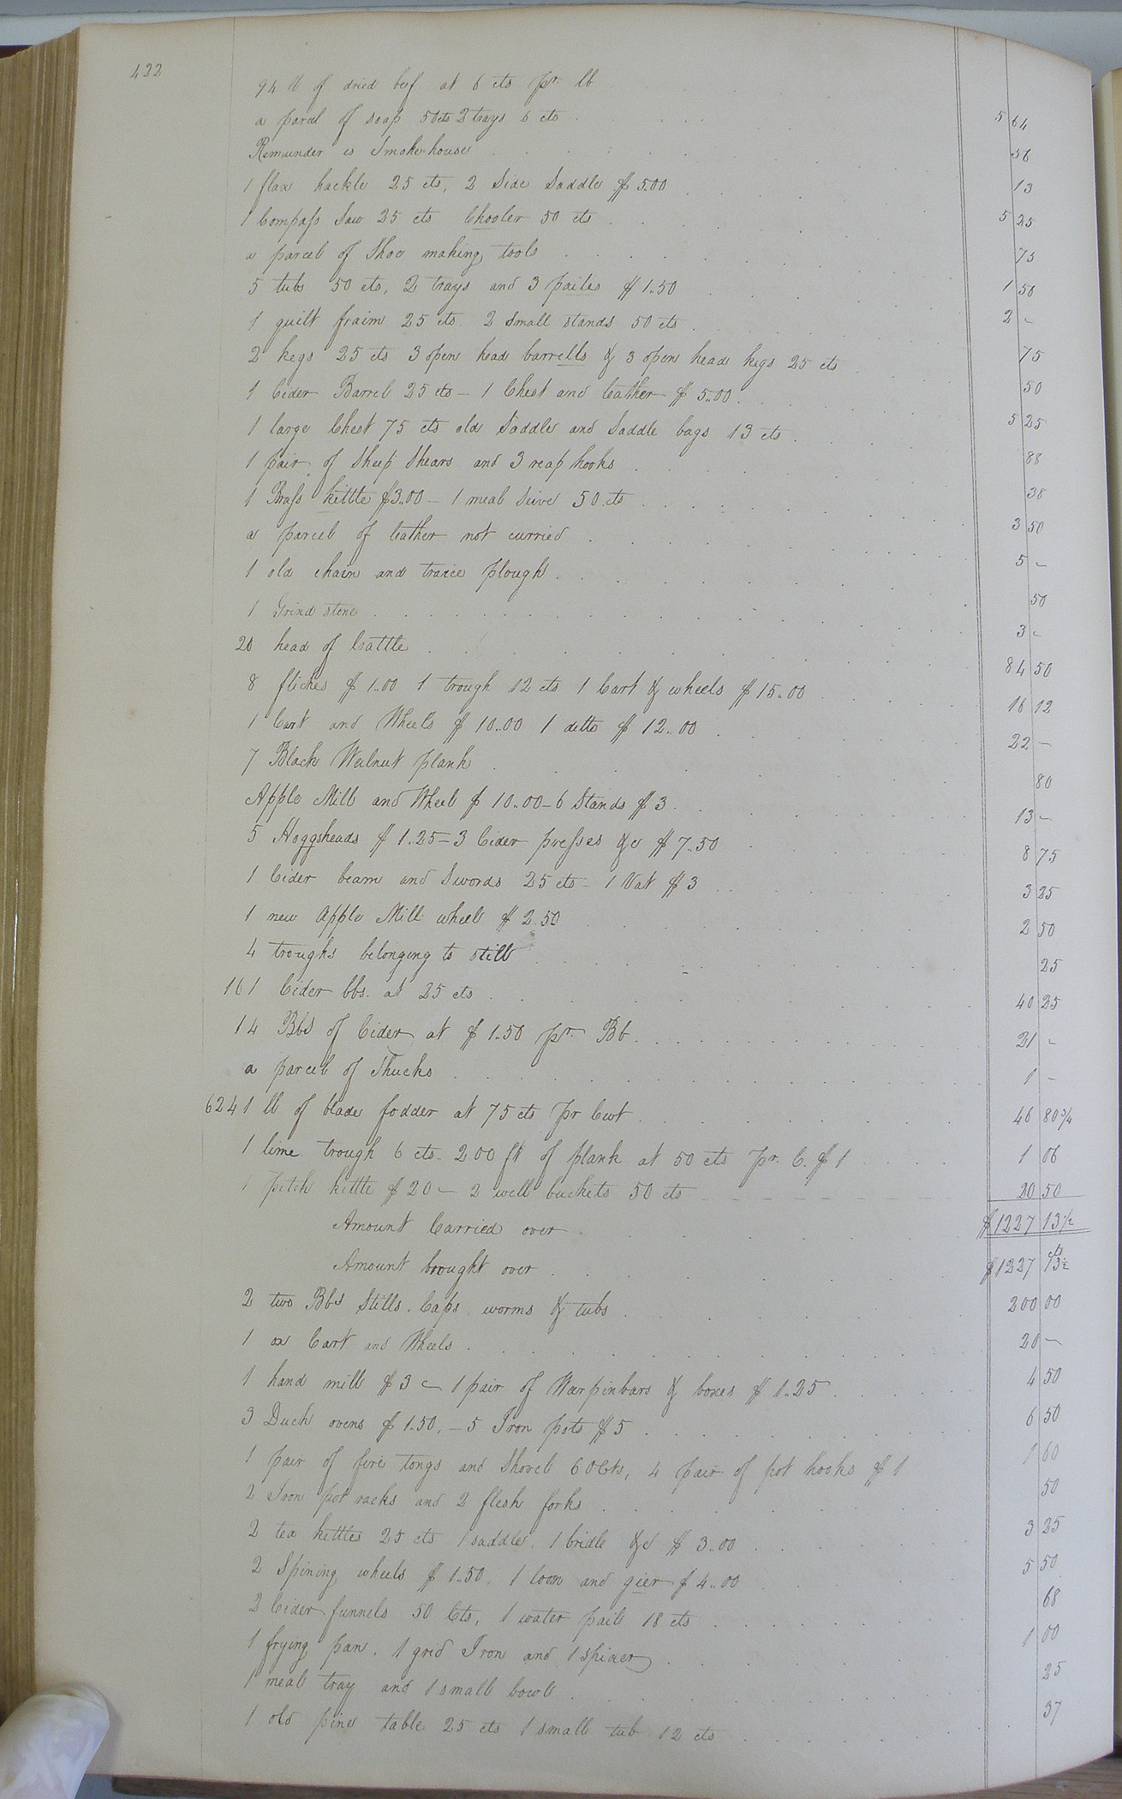 422
94 lb of dried beef at 6 cts pr. lb 5 64
a parcel of soap 50 cts 2 trays 6 cts 56
Remainder in Smokehouse 13
1 flax hackle 25 cts, 2 Side Saddle $ 5.00 5 25
1 Compass Saw 25 cts 50 cts 75
a parcel of Shoe making tools 1 50
5 tubs 50 cts, 2 trays and 3 pailes $ 1..50 2 -
1 quilt fraim 25 cts. 2 small stands 50 cts 75
2 kegs 25 cts 3 open head barrells & 3 open head kegs 25 cts 50
1 Cider Barrel 25 cts - 1 Chest and leather $ 5..00 5 25
1 large Chest 75 cts old Saddle and Saddle bags 13 cts 88
1 pair of Sheep Shears and 3 reap hooks 38
1 Brass kittle $3..00 - 1 meal Seive 50 cts 3 50
a parcel of leather not curried 5 -
1 old chain and plough 50
1 Grind stone 3 -
20 head of Cattle 84 50
8 $ 1..00 1 trough 12 cts 1 Cart & wheels $ 15..00 16 12
1 Cart and Wheels $ 10..00 1 ditto $ 12..00 22 -
7 Black Walnut plank 80
Apple Mill and Wheel $ 10..00 - 6 Stands $ 3 13 -
5 Hoggsheads $ 1..25 - 3 Cider presses &c $ 7..50 8 75
1 Cider beam and Swords 25 cts - 1 Vat $ 3 3 25
1 new Apple Mill wheel $ 2 50 2 50
4 troughs belonging to still 25
161 Cider bbs. at 25 cts 40 25
14 Bbs of Cider at $ 1..50 pr. Bb 21 -
a parcel of Shucks 1 -
6241 lb of blade fodder at 75 cts Pr Cwt 46 80 3/4
1 lime trough 6 cts. 200 ft of plank at 50 cts pr. C. $ 1 1 06
1 pitch kittle $ 20 - 2 well buckets 50 cts 20 50
Amount Carried over $ 1227 13 1/2
Amount brought over $ 1227 13 1/2
2 two Bbs Stills. Caps worms & tubs 200 00
1 ox Cart and Wheels 20 -
1 hand mill $ 3 - 1 pair of Warpinbars & boxes $ 1..25 4 50
3 Duch ovens $ 1.50. - 5 Iron pots $ 5 6 50
1 pair of fire tongs and Shovel 60 Cts, 4 pair of pot hooks $ 1 1 60
2 Iron pot racks and 2 flesh forks 50
2 tea kettles 25 cts 1 saddle. 1 bridle &c $ 3..00 3 25
2 Spining wheels $ 1..50. 1 loom and gier $ 4..00 5 50
2 Cider funnels 50 Cts, 1 water pail 18 cts 68
1 frying pan. 1 grid Iron and 1 spider 1 00
1 meal tray and 1 small bowl 25
1 old pine table 25 cts 1 small tub 12 cts 37